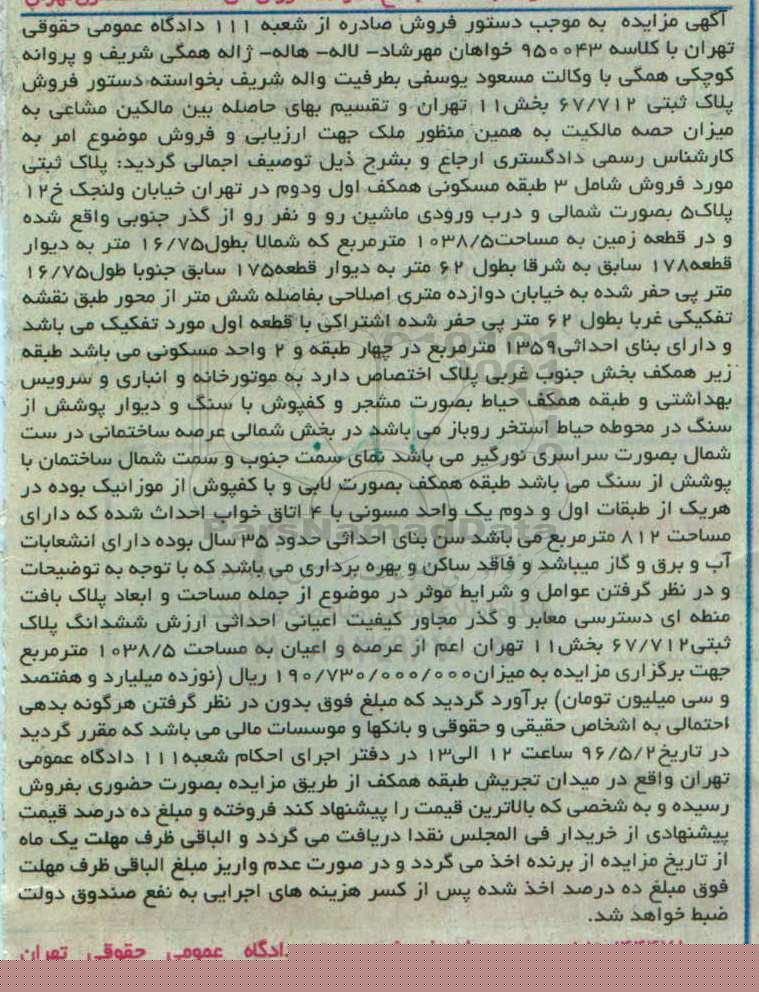 آگهی مزایده به موجب دستور فروش صادره از شعبه ۱۱۱ دادگاه عمومی حقوقی
تهران با کلاسه ۹۵۰۰۴۳ خواهان مهرشاد- لاله- هاله- ژاله همگی شریف و پروانه
کوچکی همگی با وکالت مسعود یوسفی بطرفیت واله شریف بخواسته دستور فروش
پلاک ثبتی ۶۷/۷۱۲ بخش۱۱ تهران و تقسیم بهای حاصله بین مالکین مشاعی به
میزان حصه مالکیت به همین منظور ملک جهت ارزیابی و فروش موضوع امر به
کارشناس رسمی دادگستری ارجاع و بشرح ذیل توصیف اجمالی گردید: پلاک ثبتی
مورد فروش شامل ۳ طبقه مسکونی همکف اول ودوم در تهران خیابان ولنجک خ۱۲
پلاک۵ بصورت شمالی و درب ورودی ماشین رو و نفر رو از گذر جنوبی واقع شده
و در قطعه زمین به مساحت۱۰۳۸/۵ مترمربع که شمالا بطول۱۶/۷۵ متر به دیوار
قطعه۱۷۸ سابق به شرقا بطول ۶۲ متر به دیوار قطعه۱۷۵ سابق جنوبا طول۱۶/۷۵
متر پی حفر شده به خیابان دوازده متری اصلاحی بفاصله شش متر از محور طبق نقشه
تفکیکی غربا بطول ۶۲ متر پی حفر شده اشتراکی با قطعه اول مورد تفکیک می باشد
و دارای بنای احداثی۱۳۵۹ مترمربع در چهار طبقه و ۲ واحد مسکونی می باشد طبقه
زیر همکف بخش جنوب غربی پلاک اختصاص دارد به موتورخانه و انباری و سرویس
بهداشتی و طبقه همکف حیاط بصورت مشجر و کفپوش با سنگ و دیوار پوشش از
سنگ در محوطه حیاط استخر روباز می باشد در بخش شمالی عرصه ساختمانی در ست
شمال بصورت سراسری نورگیر می باشد نمای سمت جنوب و سمت شمال ساختمان با
پوشش از سنگ می باشد طبقه همکف بصورت لابی و با کفپوش از موزانیک بوده در
هریک از طبقات اول و دوم یک واحد مسونی با ۴ اتاق خواب احداث شده که دارای
مساحت ۸۱۲ مترمربع می باشد سن بنای احداثی حدود ۳۵ سال بوده دارای انشعابات
آب و برق و گاز میباشد و فاقد ساکن و بهره برداری می باشد که با توجه به توضیحات
و در نظر گرفتن عوامل و شرایط موثر در موضوع از جمله مساحت و ابعاد پلاک بافت
منطه ای دسترسی معابر و گذر مجاور کیفیت اعیانی احداثی ارزش ششدانگ پلاک
ثبتی۶۷/۷۱۲ بخش۱۱ تهران اعم از عرصه و اعیان به مساحت ۱۰۳۸/۵ مترمربع
جهت برگزاری مزایده به میزان۱۹۰/۷۳۰/۰۰۰/۰۰۰ ریال (نوزده میلیارد و هفتصد
و سی میلیون تومان) برآورد گردید که مبلغ فوق بدون در نظر گرفتن هرگونه بدهی
احتمالی به اشخاص حقیقی و حقوقی و بانکها و موسسات مالی می باشد که مقرر گردید
در تاریخ۹۶/۵/۲ ساعت ۱۲ الی۱۳ در دفتر اجرای احکام شعبه۱۱۱ دادگاه عمومی
تهران واقع در میدان تجریش طبقه همکف از طریق مزایده بصورت حضوری بفروش
رسیده و به شخصی که بالاترین قیمت را پیشنهاد کند فروخته و مبلغ ده درصد قیمت
پیشنهادی از خریدار فی المجلس نقدا دریافت می گردد و الباقی ظرف مهلت یک ماه
از تاریخ مزایده از برنده اخذ می گردد و در صورت عدم واریز مبلغ الباقی ظرف مهلت
فوق مبلغ ده درصد اخذ شده پس از کسر هزینه های اجرایی به نفع صندوق دولت
ضبط خواهد شد.
دادگاه عمومی حقوقی تهران
ParsNamadData